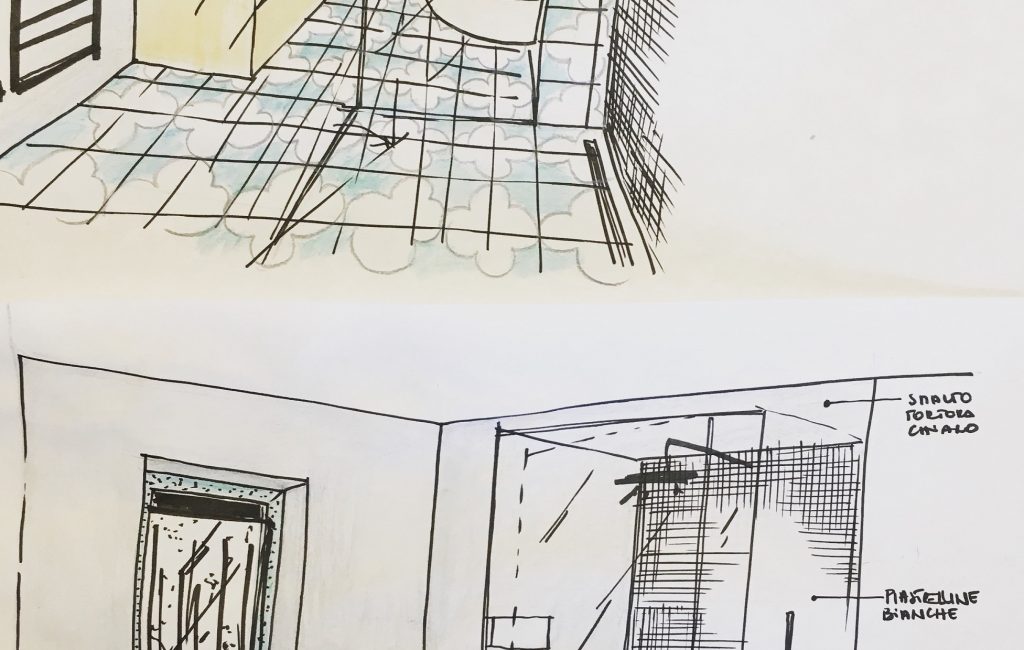 SMALTO
TORTORA
CHIARO
PIASTRELLINE
BIANCHE